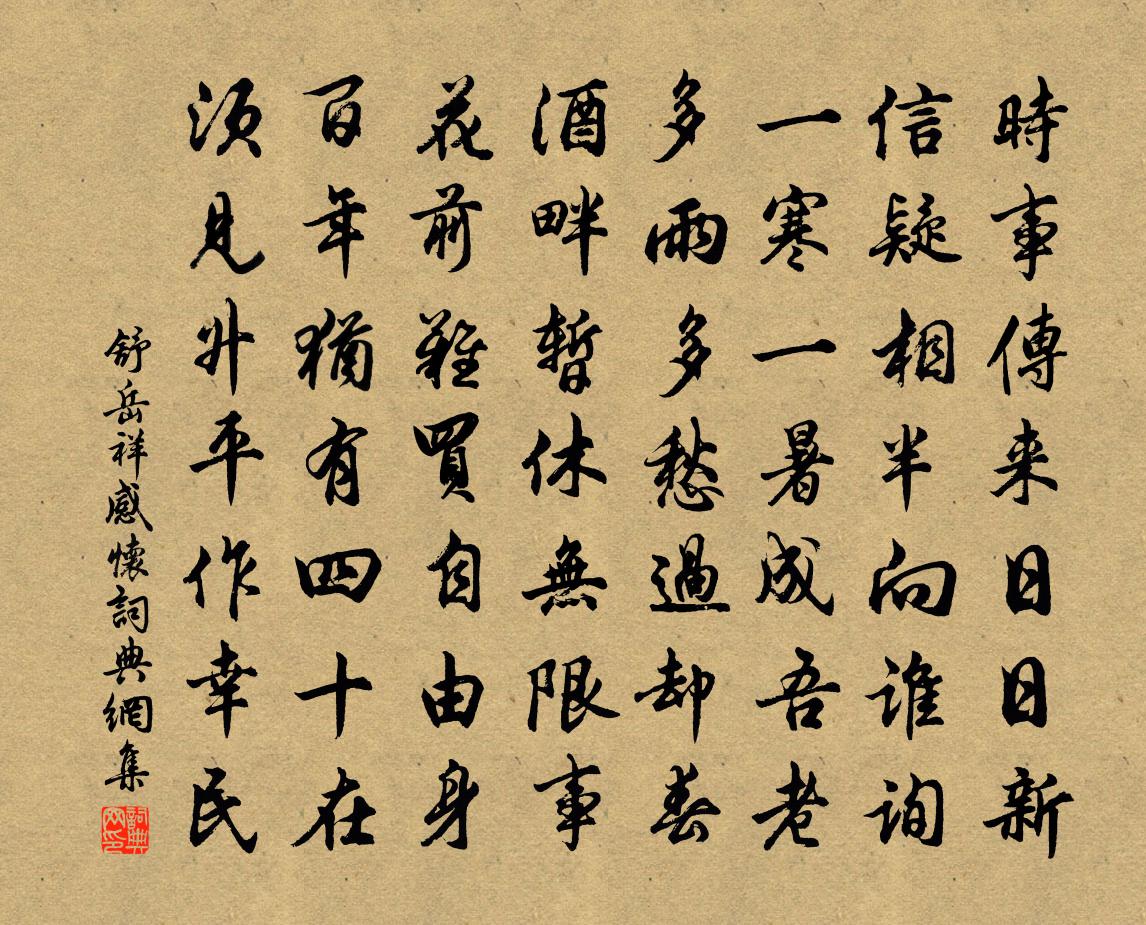 時事傳来日日新
信疑相半向誰詢
一寒一暑成吾老
多雨多愁過却春
酒畔暫休無限事
花前難買自由身
百年猶有四十在
須見升平作幸民
舒岳祥感懷詞典網集
詞典网印